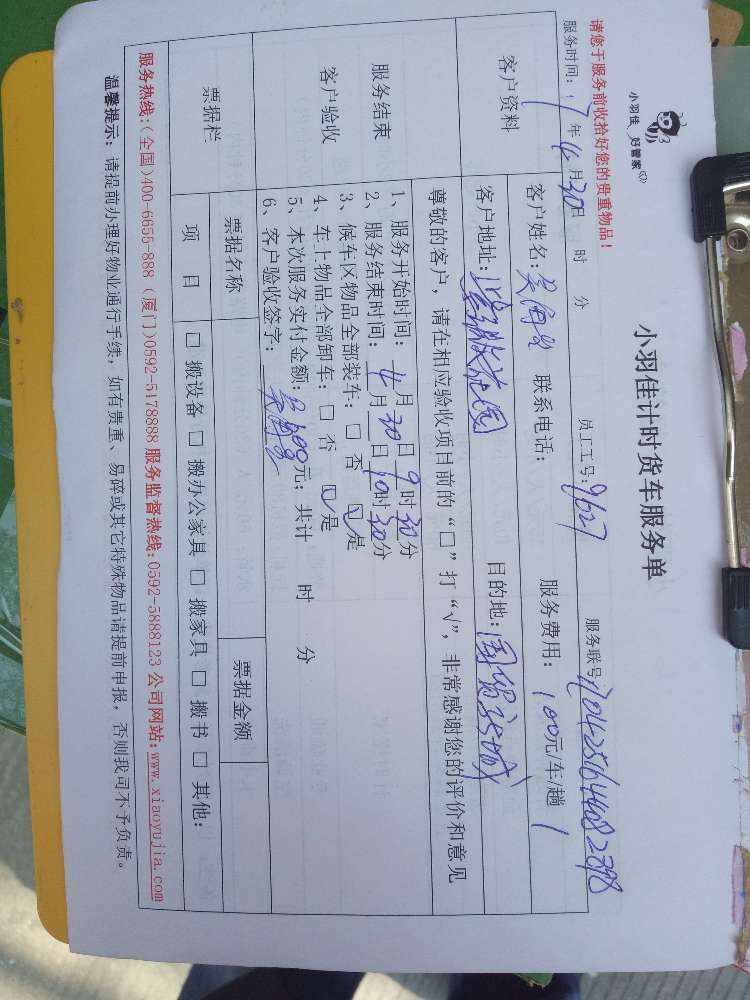 小羽佳 好管家
小羽佳计时货车服务单
请您于服务前收拾好您的贵重物品！
服务时间：17年4月30日 时 分 员工工号：9627 服务联号：
客户资料
客户姓名： 联系电话： 服务费用：100元/车/趟
客户地址： 目的地：国贸新城
服务结束
客户验收
尊敬的客户，请在相应验收项目前的“□”打“√”，非常感谢您的评价和意见
1、服务开始时间：4月30日9时30分
2、服务结束时间：4月30日10时30分
3、候车区物品全部装车：□ 否 ☑ 是
4、车上物品全部卸车：□ 否 ☑ 是
5、本次服务实付金额：元；共计 时 分
6、客户验收签字：
票据栏
票据名称 票据金额
项 目 □ 搬设备 □ 搬办公家具 □ 搬家具 □ 搬书 □ 其他：
服务热线：（全国）400-6655-888（厦门）0592-5178888 服务监督热线：0592-5888123 公司网站：www.xiaoyujia.com
温馨提示：请提前办理好物业通行手续，如有贵重、易碎或其它特殊物品请提前申报，否则我司不予负责。